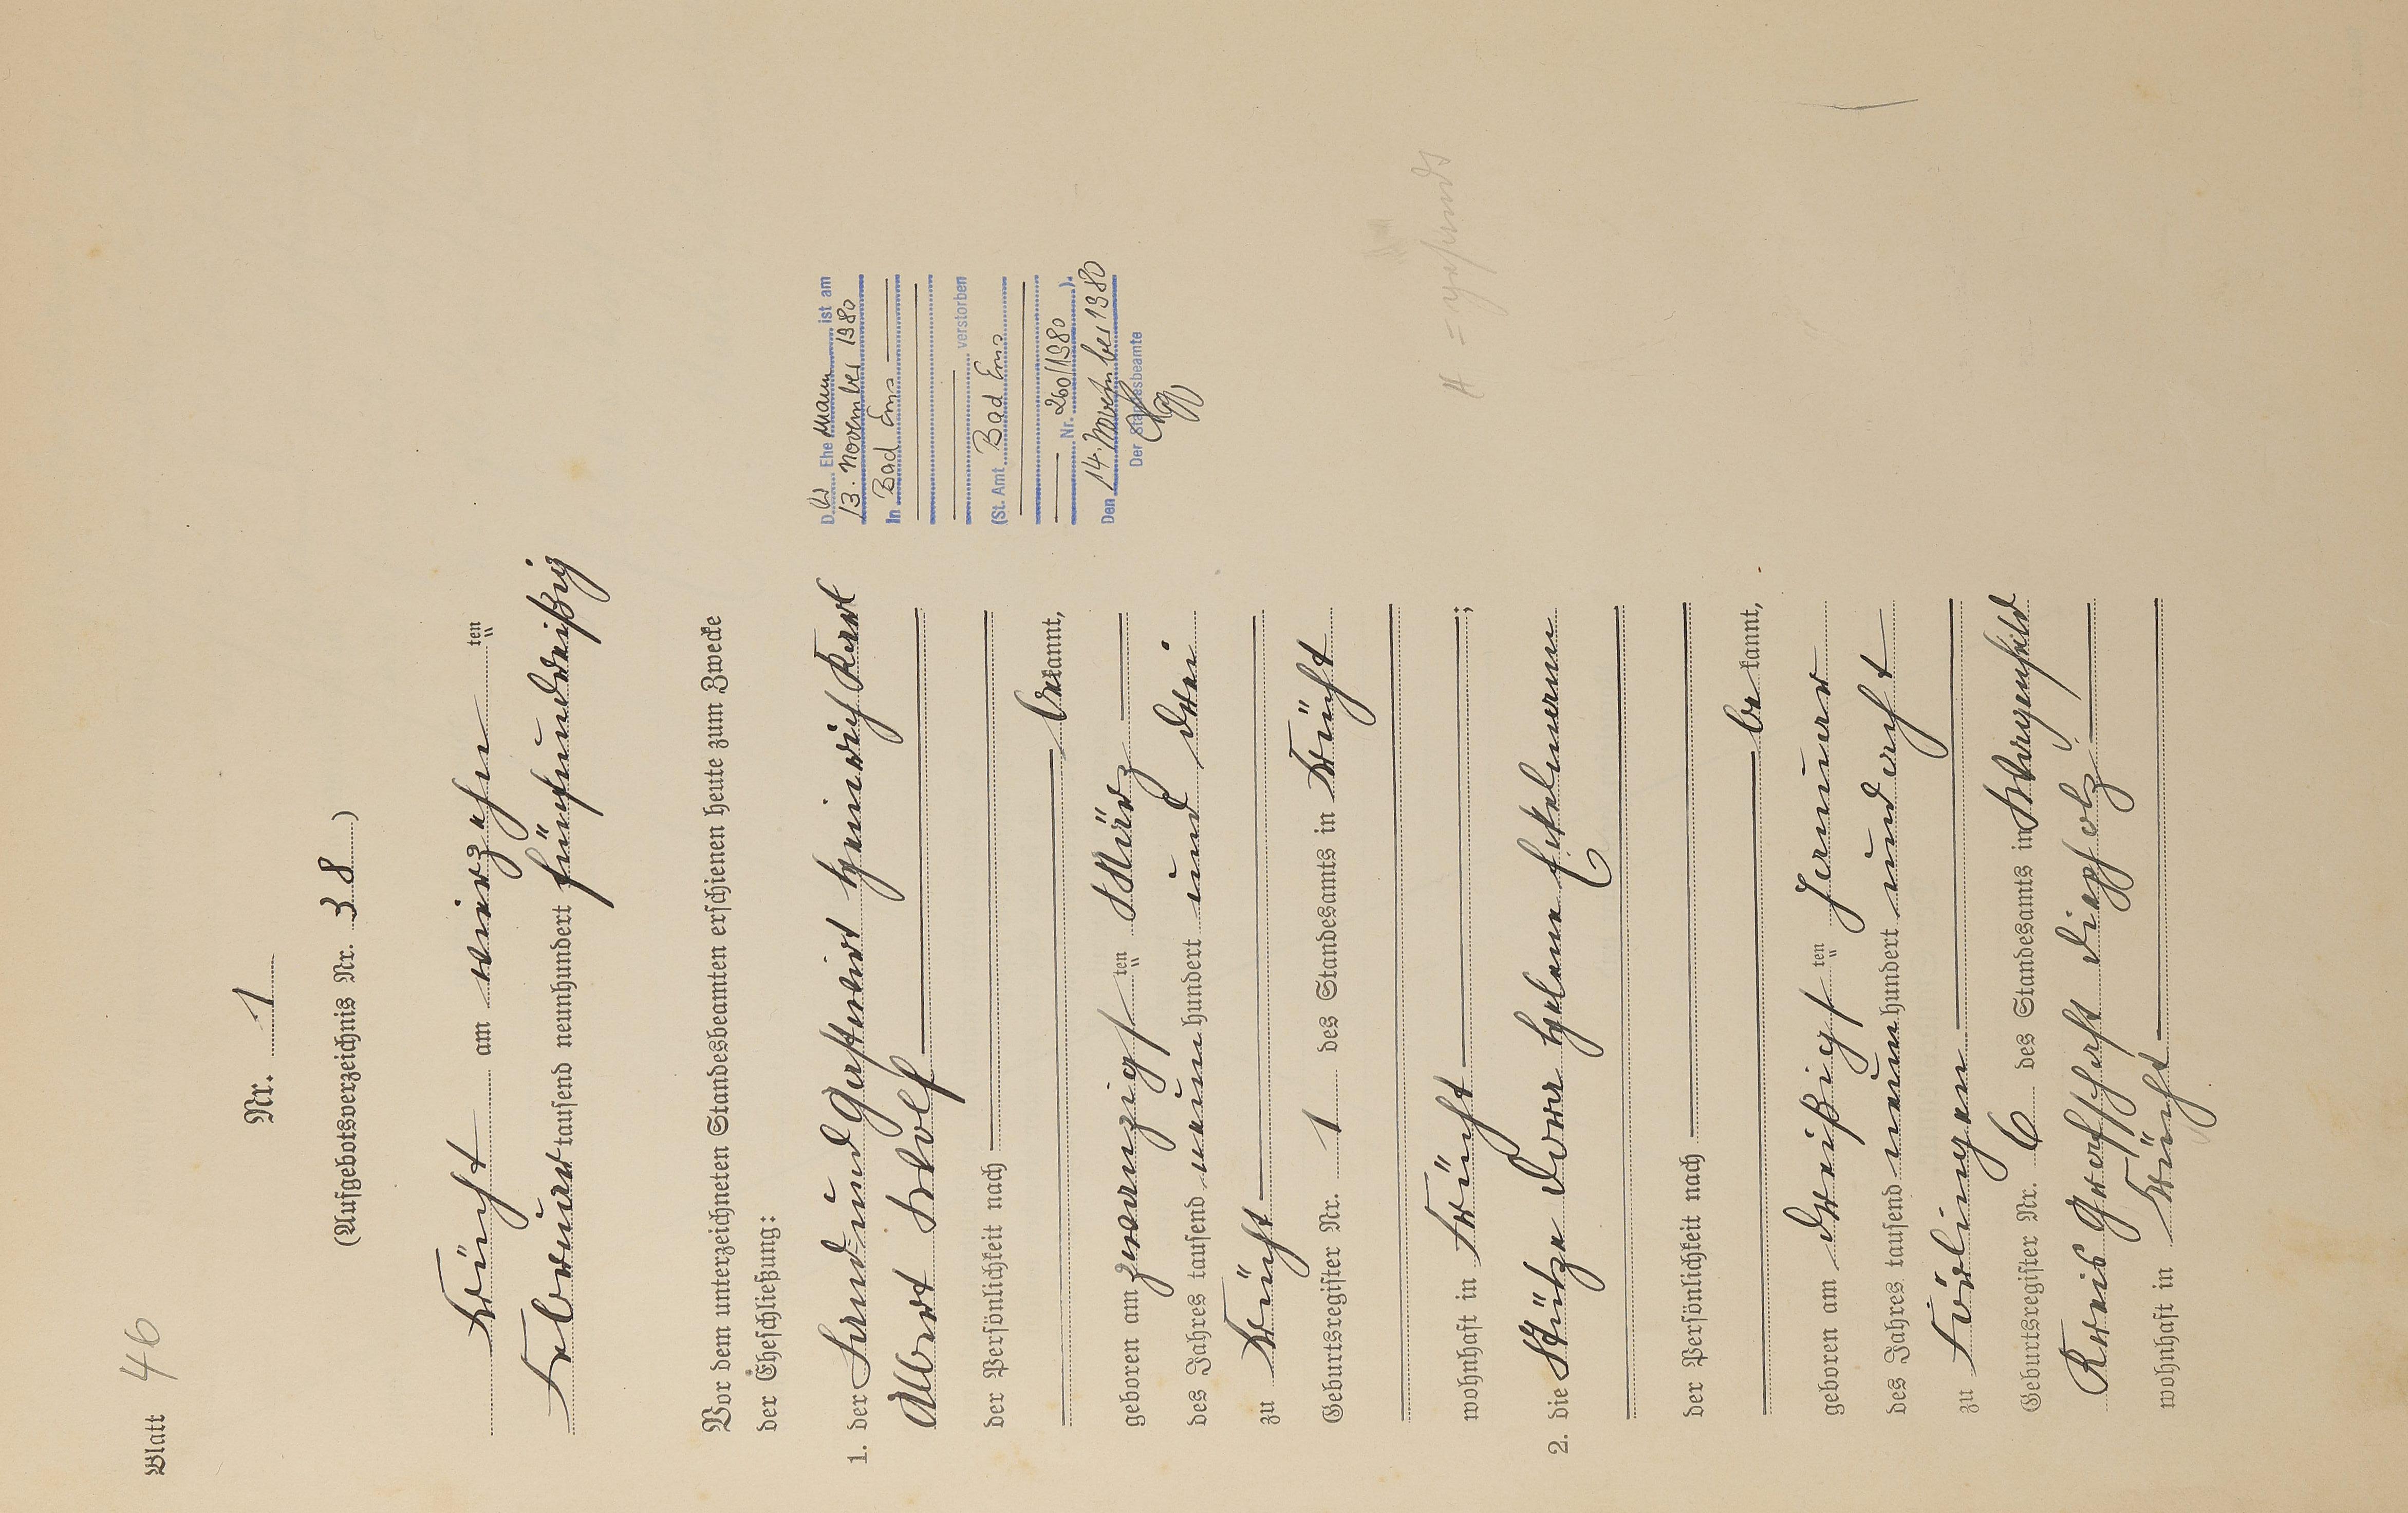 Blatt 46
Nr. 1
(Aufgebotsverzeichnis Nr. 38)
Frücht am vierzehn ten
Februar tausend neunhundert fünfunddreißig
Vor dem unterzeichneten Standesbeamten erschienen heute zum Zwecke
der Eheschließung:
1. der Land= und Gastwirt Heinrich Karl
Albert Wolf
der Persönlichkeit nach
bekannt,
geboren am zwanzigsten März
des Jahres tausend neunhundert und drei
zu Frücht
Geburtsregister Nr. 1 des Standesamts in Frücht
wohnhaft in Frücht ;
2. die Stütze Dora Helene
der Persönlichkeit nach
bekannt,
geboren am dreißigsten Januar
des Jahres tausend neunhundert und acht
zu
Geburtsregister Nr. 6 des Standesamts in
Kreis Grafschaft Diepholz
wohnhaft in Frücht
Der Ehe Mann ist am
13. November 1980
In Bad Ems
verstorben
(St. Amt Bad Ems
Nr. 260/1980 ).
Den 14. November 1980
Der Standesbeamte